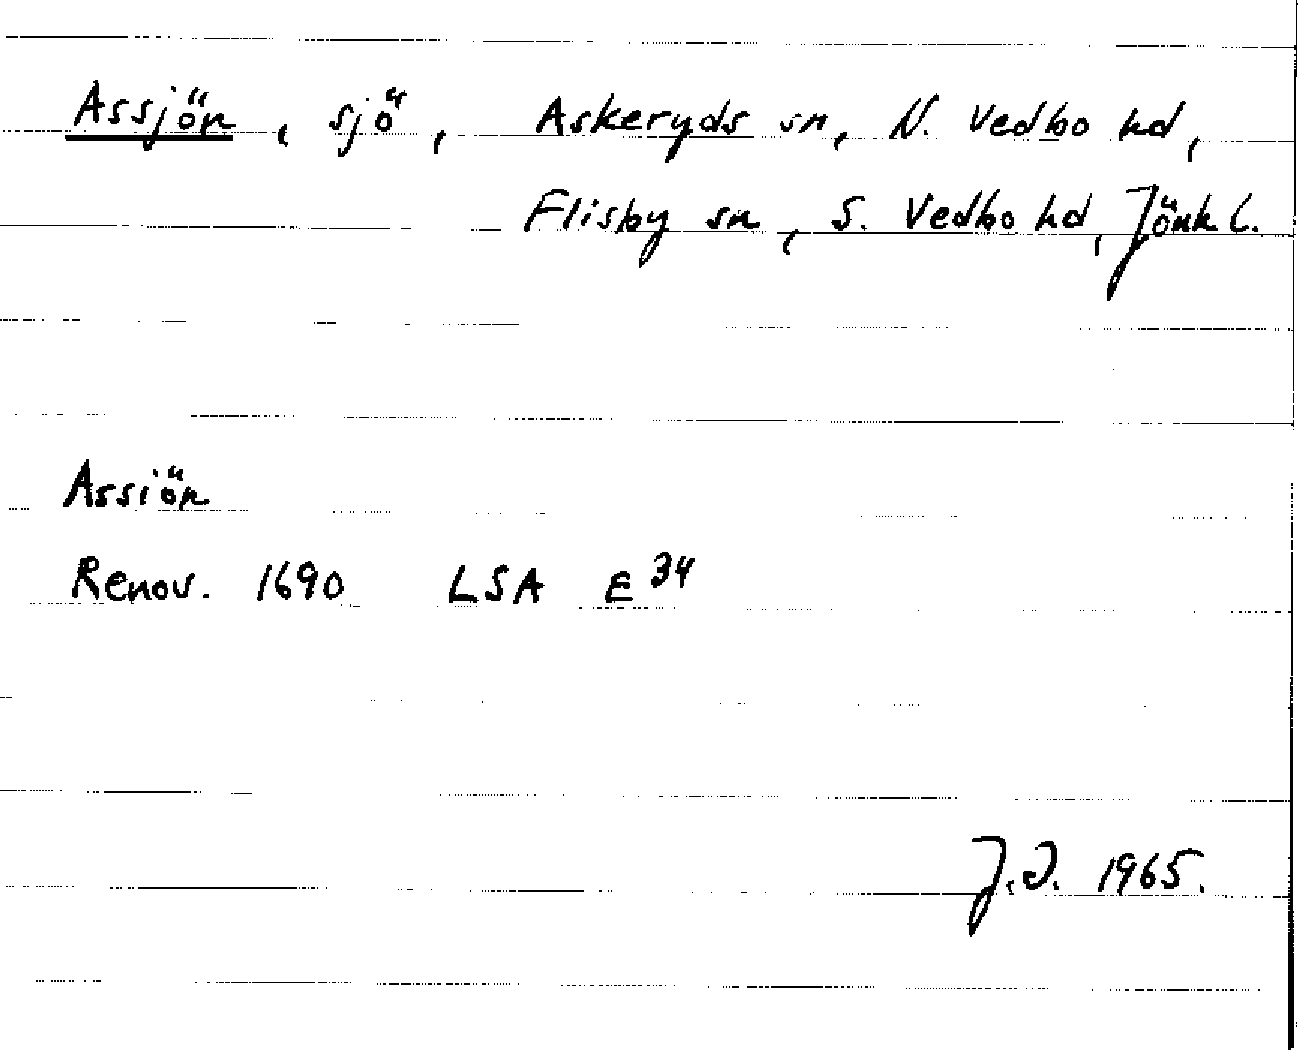 Assjön, sjö, Askeryds sn, N. Vedbo hd,
Flisby sn, S. Vedbo hd, Jönk l.
Assiön
Renov. 1690 LSA E³⁴
J.D. 1965.